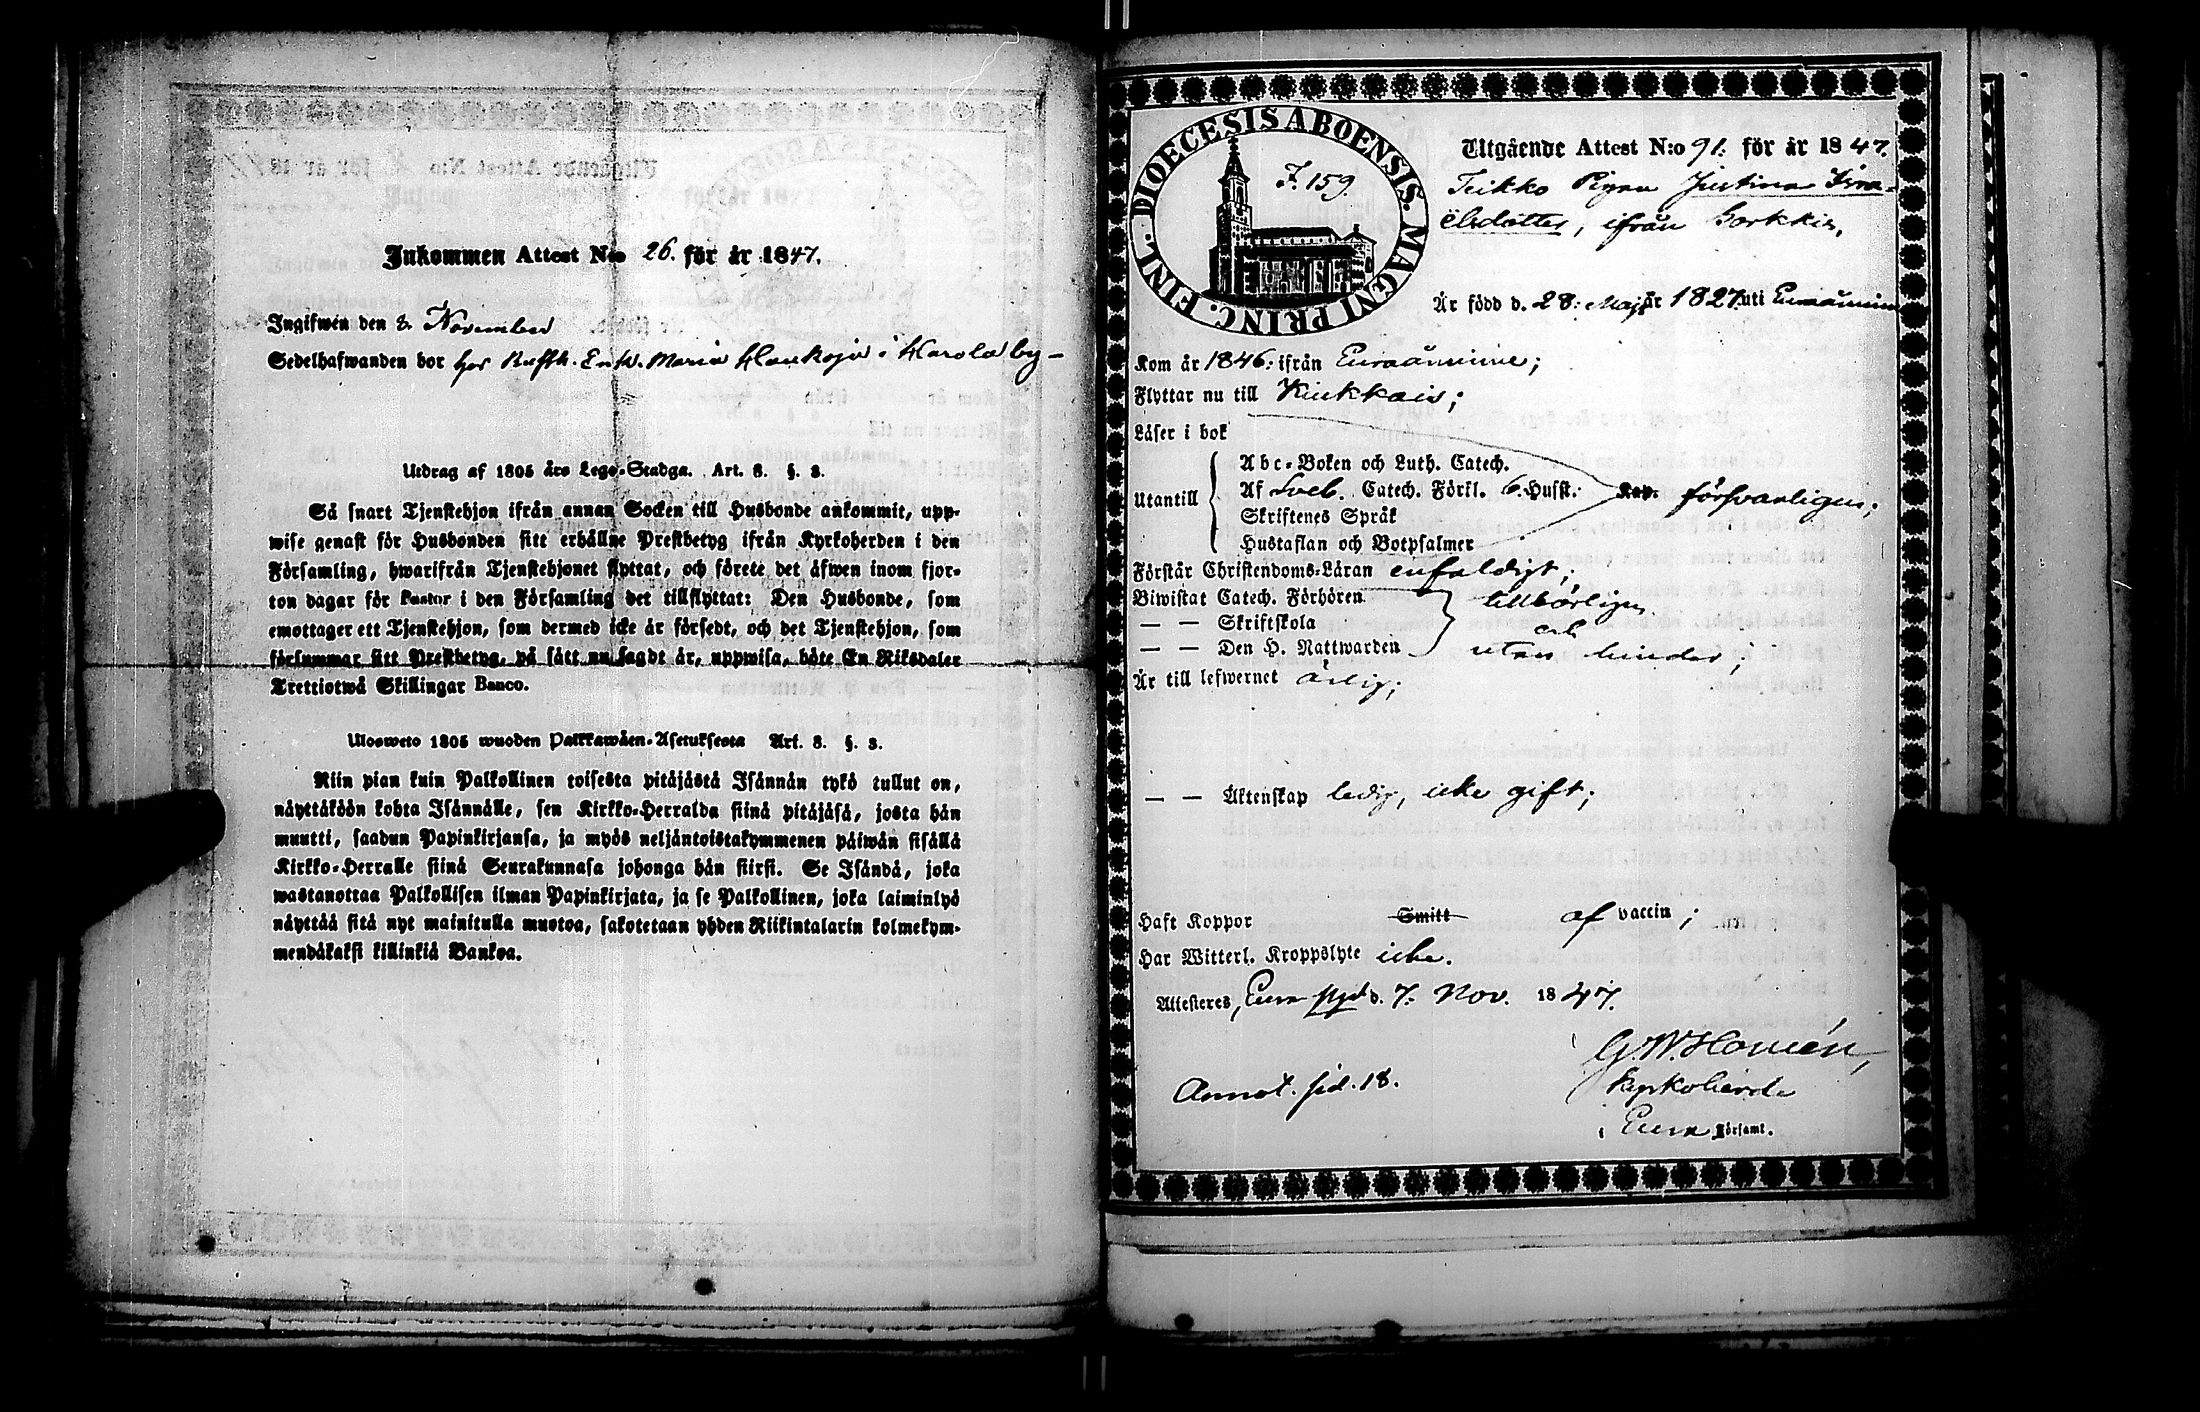 Inkommen Attest N:o 26. för år 1847.
Ingifwen den 8. November
Sedelhafwanden bor hos Rusth. Enk. Maria Haukoja i Karola by
Utdrag af 1805 års Lego-Stadga. Art. 3. §. 3.
Så snart Tjenstehjon ifrån annan Socken till Husbonde ankommit, upp-
wise genast för Husbonden sitt erhållne Prestbetyg ifrån Kyrkoherden i den
Församling, hwarifrån Tjenstehjonet flyttat, och förete det äfwen inom fjor-
ton dagar för Pastor i den Församling det tillflyttat: Den Husbonde, som
emottager ett Tjenstehjon, som dermed icke är försedt, och det Tjenstehjon, som
försummar sitt Prestbetyg, på sätt nu sagdt är, uppwisa, böte En Riksdaler
Trettiotwå Skillingar Banco.
Ulosweto 1805 wuoden Palkkawäen-Asetuksesta Art. 3. §. 3.
Niin pian kuin Palkollinen toisesta pitäjästä Isännän tykö tullut on,
näyttäköön kohta Isännälle, sen Kirkko-Herralda siinä pitäjäsä, josta hän
muutti, saadun Papinkirjansa, ja myös neljäntoistakymmenen päiwän sisällä
Kirkko-Herralle siinä Seurakunnasa johonga hän siirsi. Se Isändä, joka
wastanottaa Palkollisen ilman Papinkirjata, ja se Palkollinen, joka laiminlyö
näyttää sitä nyt mainitulla muotoa, sakotetaan yhden Riikintalarin kolmekym-
mendäkaksi killinkiä Bankoa.
DIOECESIS ABOENSIS. MAGNI PRINC. FINL.
F. 159.
Utgående Attest N:o 91. för år 1847.
Pigan Justina Isra-
elsdotter, ifrån Sorkkis,
Är född d. 28. Maji år 1827. uti Euraåminne
Kom år 1846. ifrån Euraåminne;
Flyttar nu till Kiukkais;
Läser i bok
Utantill
Abc-Boken och Luth. Catech.
Af Sveb. Catech. Förkl. 6. Husst. Kap. försvarligen;
Skriftenes Språk
Hustaflan och Botpsalmer
Förstår Christendoms-Läran enfaldigt;
Biwistat Catech. Förhören tillbörligen
— — Skriftskola och
— — Den H. Nattwarden utan hinder;
Är till lefwernet ärlig;
— — Äktenskap ledig, icke gift;
Haft Koppor Smitt af vaccin;
Har Witterl. Kroppslyte icke.
Attesteres, Eura pgd d. 7. Nov. 1847.
G. W. Homén,
Kyrkoherde
i Eura Församl.
Annot. sid. 18.